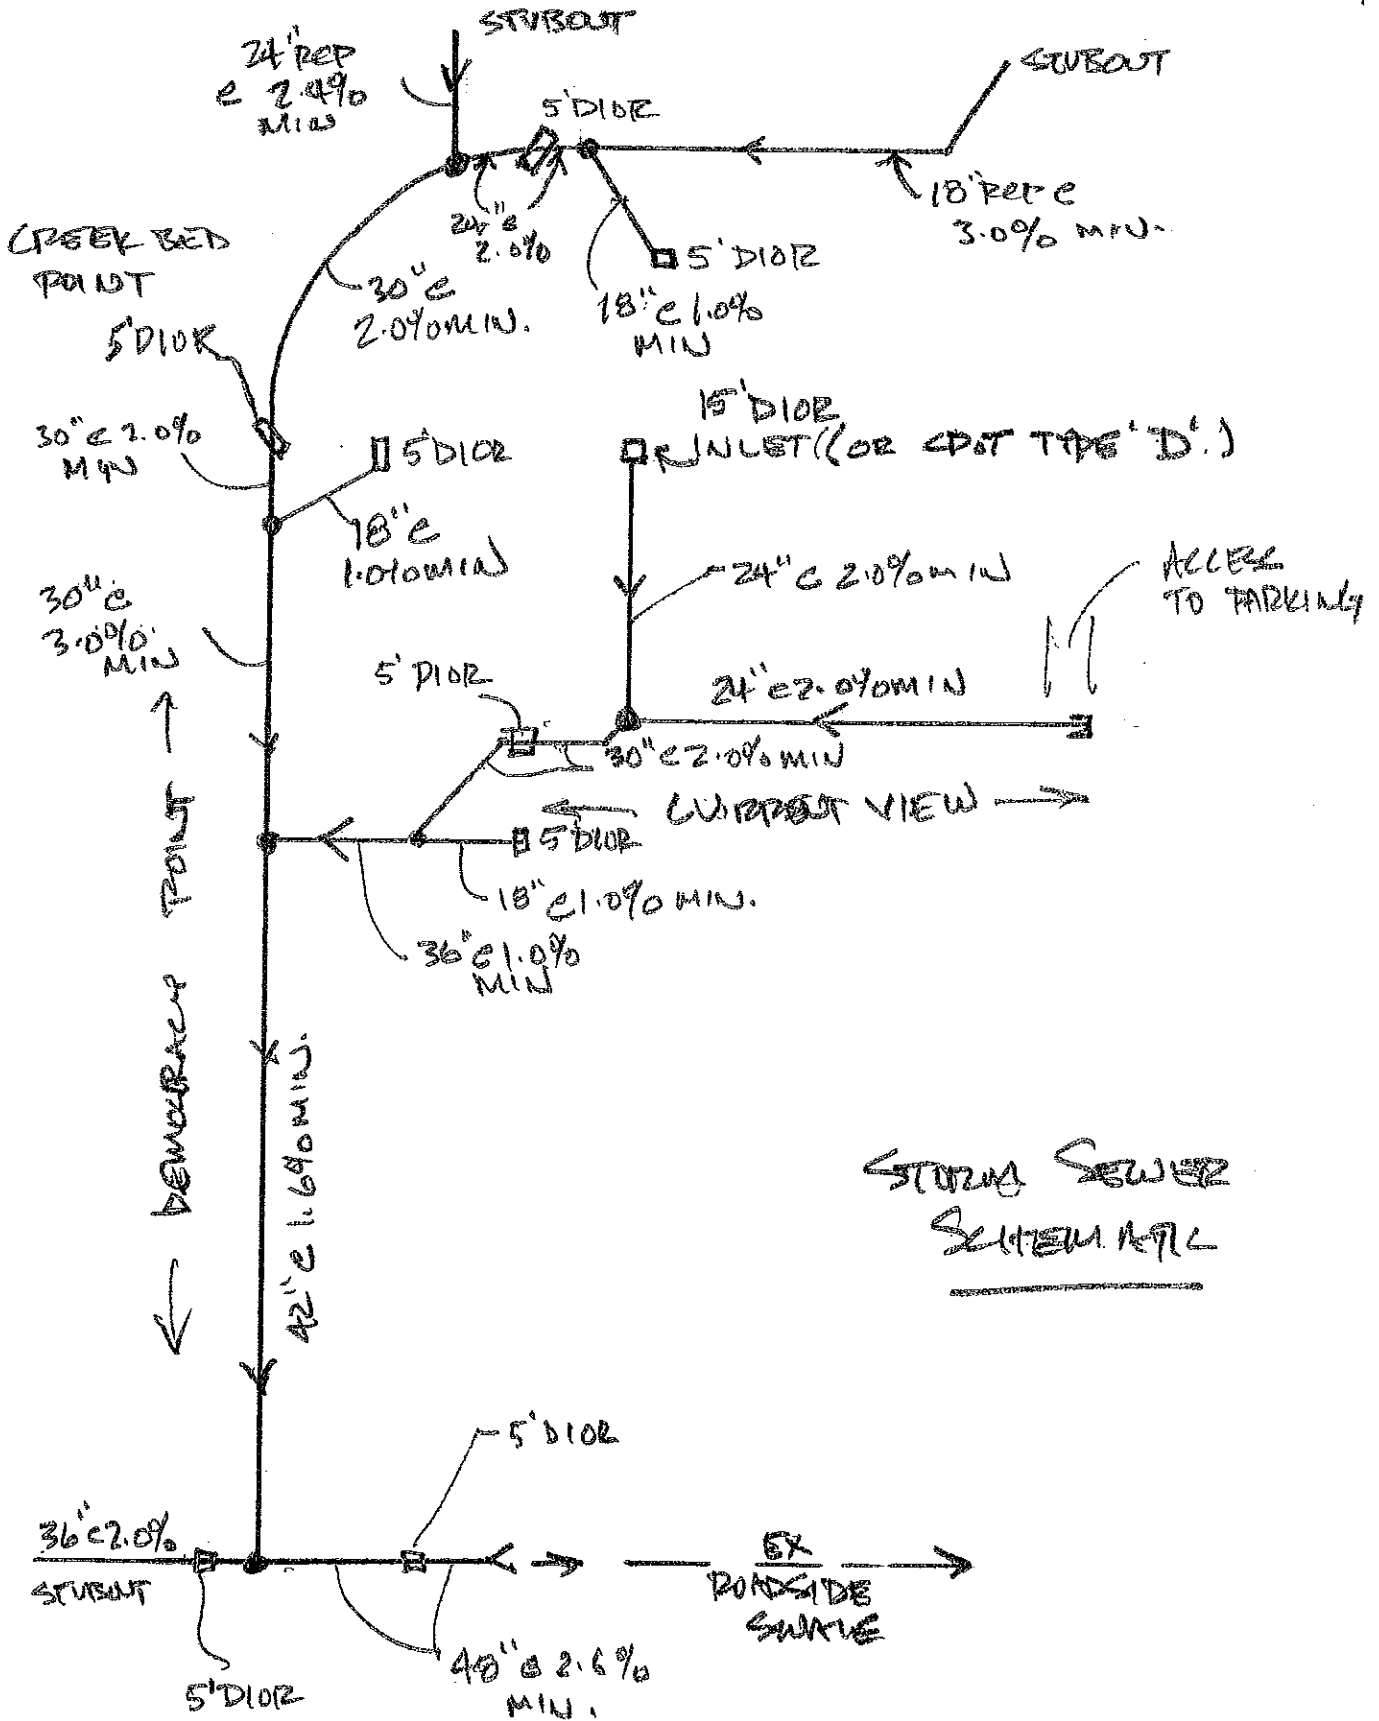 STUBOUT
24" RCP
@ 2.4%
MIN
STUBOUT
5' D10R
18" RCP @
3.0% MIN.
24" @
2.0%
5' D10R
CREEK BED
POINT
30" @
2.0% MIN.
18" @ 1.0%
MIN
5' D10R
15' D10R
INLET (OR CDOT TYPE 'D'.)
30" @ 2.0%
MIN
5' D10R
18" @
1.0% MIN
24" @ 2.0% MIN
ACCESS
TO PARKING
30" @
3.0%
MIN
5' D10R
24" @ 2.0% MIN
30" @ 2.0% MIN
CURRENT VIEW
5' D10R
18" @ 1.0% MIN.
36" @ 1.0%
MIN
DEMOCRACY POINT
42" @ 1.6% MIN.
STORM SEWER
SCHEMATIC
5' D10R
36" @ 2.0%
STUBOUT
EX
ROADSIDE
SWALE
5' D10R
MIN.